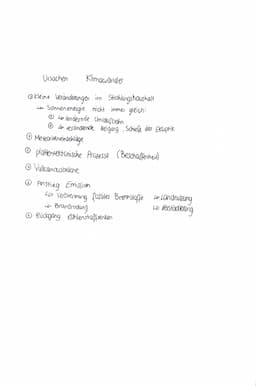 Ursachen Klimawandel
① kleine Veränderungen im Strahlungshaushalt
↳ Sonnenenergie nicht immer gleich:
① ↳ ändernde Umlaufbahn
② ↳ verändernde Neigung, Schiefe der Ekliptik
② Meteoriteneinschläge
③ plattentektonische Prozesse (Beschaffenheit)
④ Vulkanausbrüche
⑤ Anstieg Emission
↳ Verbrennung fossiler Brennstoffe ↳ Landnutzung
↳ Brandrodung ↳
⑥ Rückgang